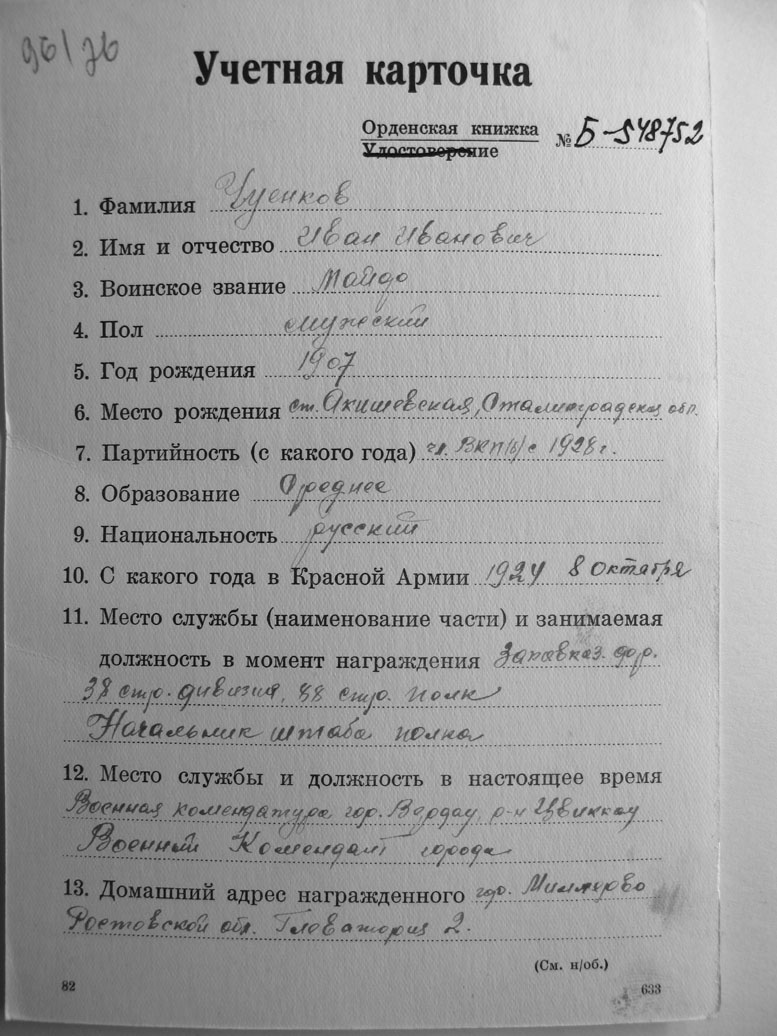 96/76
Учетная карточка
Орденская книжка № Б-548752
Удостоверение
1. Фамилия Чуенков
2. Имя и отчество Иван Иванович
3. Воинское звание Майор
4. Пол мужский
5. Год рождения 1907
6. Место рождения ст. Акишевская, Сталинградская обл.
7. Партийность (с какого года) чл. ВКП(б) с 1928 г.
8. Образование Среднее
9. Национальность русский
10. С какого года в Красной Армии 1924 8 Октября
11. Место службы (наименование части) и занимаемая
должность в момент награждения Закавказ. фр.
38 стр. дивизия, 48 стр. полк
Начальник штаба полка
12. Место службы и должность в настоящее время
Военная комендатура гор. Вердау, р-н Цвиккау
Военный Комендант города
13. Домашний адрес награжденного гор. Миллерово
Ростовской обл.
2.
(См. н/об.)
82 633